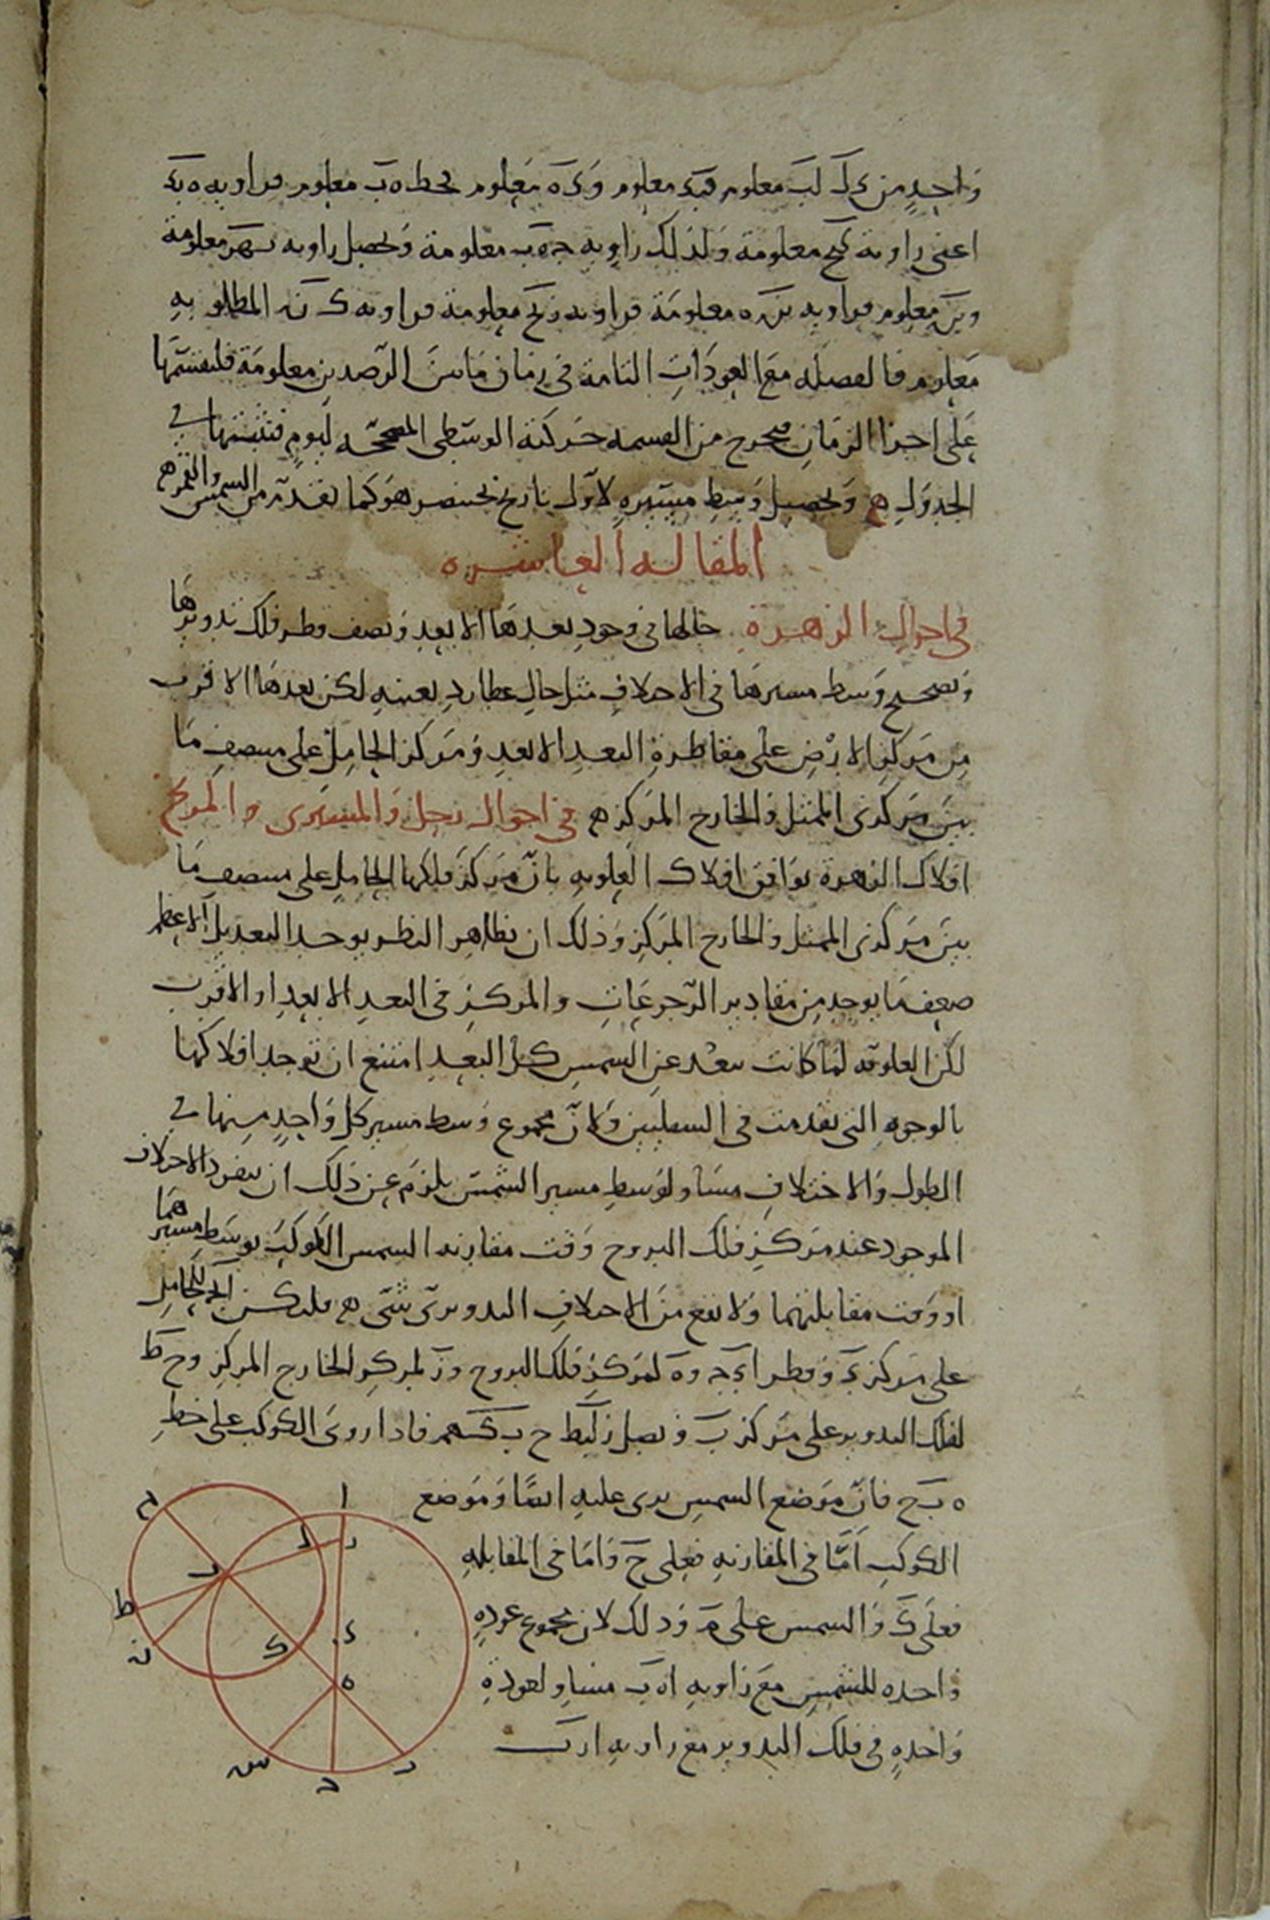 واحد من كل لب معلوم فبد معلوم و ده معلوم فخط ه ب معلوم فزاويه ه بد
اعنى زاوية كح معلومة ولذلك زاويه ج ه ب معلومة وتحصل زاويه معلومة
معلوم فزاويه معلومة فزاويه معلومة فزاويه المطلوبه
معلوم فالفضله مع العودات التامة فى زمان مابين الرصدين معلومة فلنقسمها
على اجزا الزمان فيخرج من القسمه حركته الوسطى المصححه ليوم فنثبتها فى
الجدول ه وتحصيل وسط مسيره لاول تاريخ بختنصر هو كما تقدم من الشمس والقمر ه
المقاله العاشره
فى احوال الزهرة حالها فى وجود بعدها الابعد ونصف قطر فلك تدويرها
وتصحيح وسط مسيرها فى الاختلاف مثل حال عطارد بعينه لكن بعدها الاقرب
من مركز الارض على مقاطرة البعد الابعد ومركز الحامل على منتصف ما
بين مركزى الممثل والخارج المركز ه فى احوال زحل والمشترى والمريخ
افلاك الزهرة توافق افلاك العلويه بان مركز فلكها الحامل على منتصف ما
بين مركزى الممثل والخارج المركز وذلك ان بظاهر النظر يوجد التعديل الاعظم
ضعف ما يوجد من مقادير الرجوعات والمركز فى البعد الابعد او الاقرب
لكن العلويه لما كانت تبعد عن الشمس كل البعد امتنع ان توجد افلاكها
بالوجوه التى تقدمت فى السفليين ولان مجموع وسط مسير كل واحد منها فى
الطول والاختلاف مساو لوسط مسير الشمس يلزم عن ذلك ان ينفرد الاختلاف
الموجود عند مركز فلك البروج وقت مقارنه الشمس الكوكب بوسط مسيرهما
او وقت مقابلتهما ولا يقع من الاختلاف التدويرى شى ه فليكن ابج للحامل
على مركز د وقطر ا د ج و ه لمركز فلك البروج و ز لمركز الخارج المركز و ح ط
لفلك التدوير على مركز ب ونصل فاذا روى الكوكب على خط
ه ب ح فان موضع الشمس يرى عليه ايضا وموضع
الكوكب اما فى المقارنه فعلى ح واما فى المقابله
فعلى ك والشمس على م وذلك لان مجموع عوده
واحده للشمس مع زاويه ا ه ب مساو لعودة
واحده فى فلك التدوير مع زاويه ا ز ب